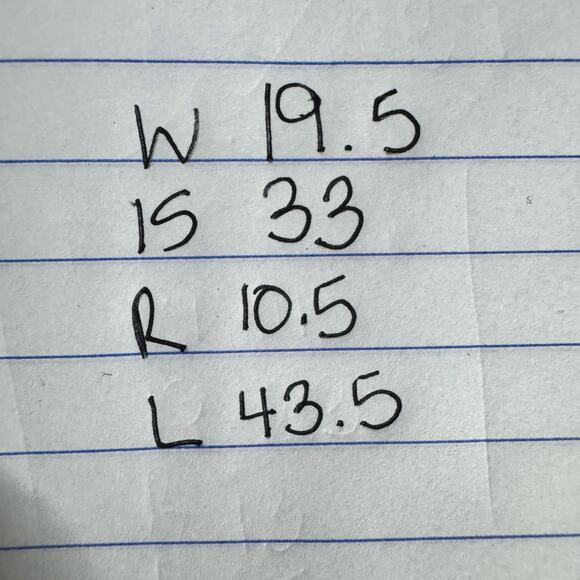 W 19.5
IS 33
R 10.5
L 43.5